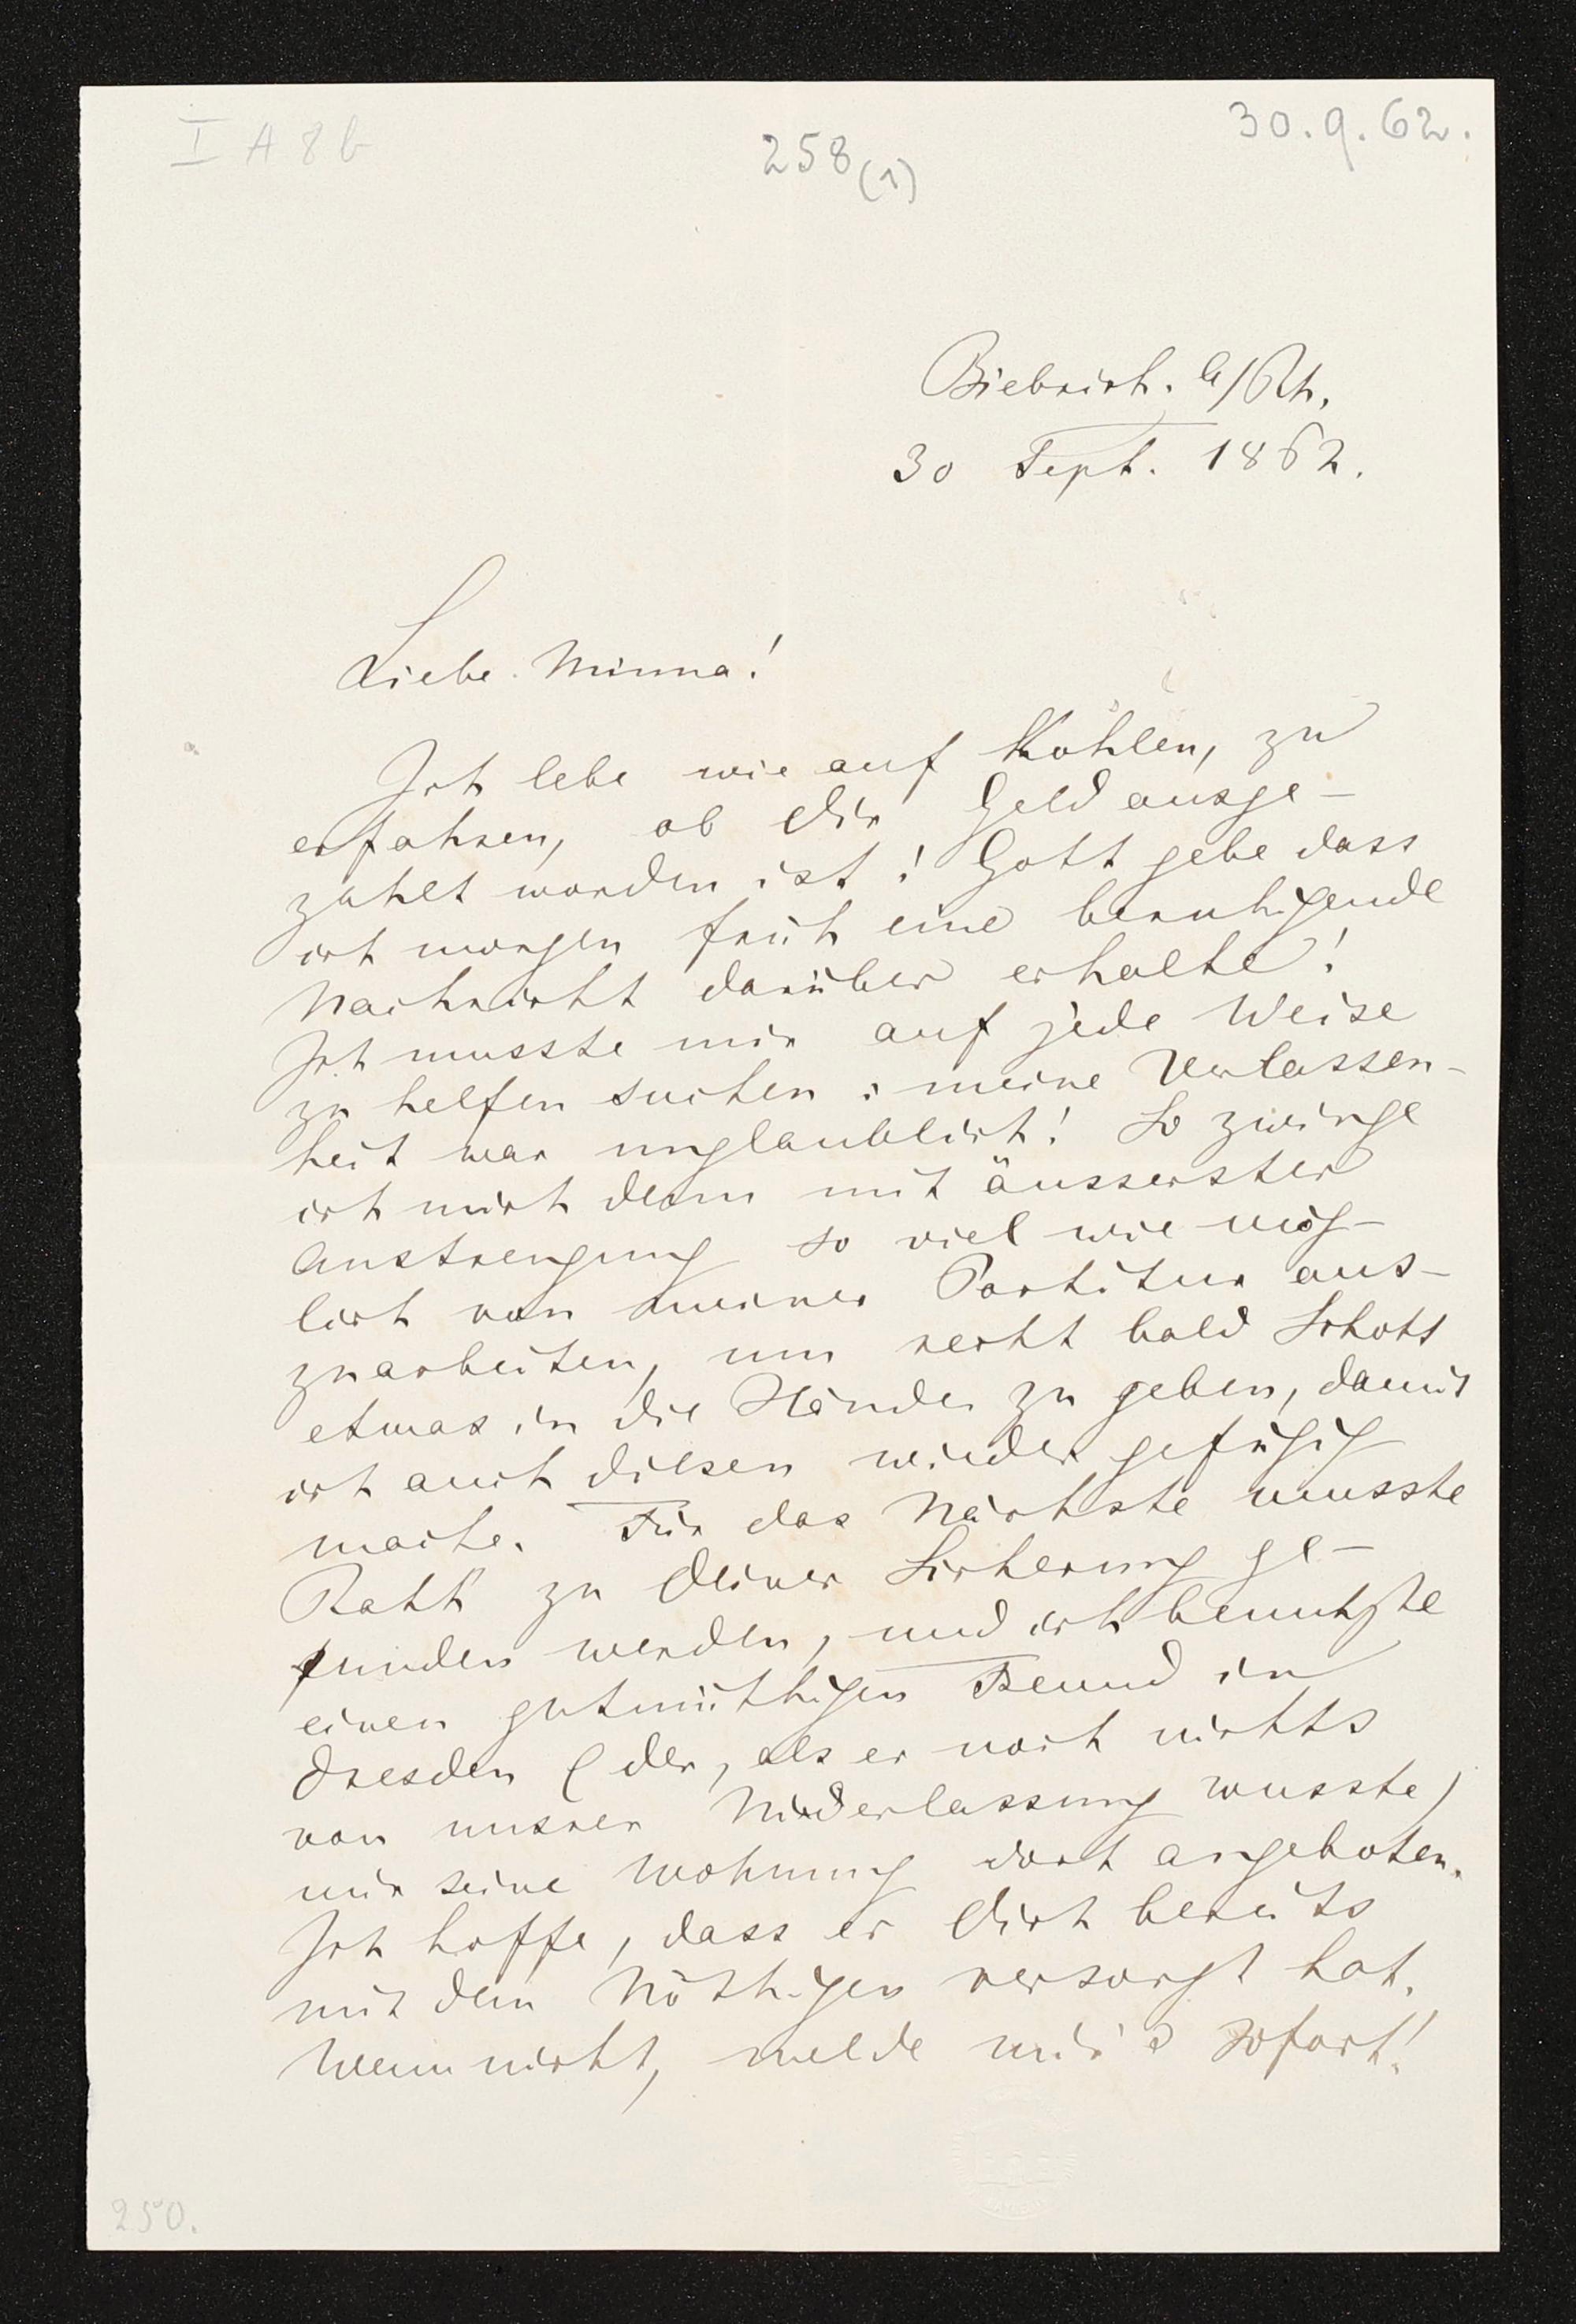 I A 8 b
258 (1)
30.9.62.
Biebrich. a/Rh.
30 Sept. 1862.
Liebe Minna!
Ich lebe wie auf Kohlen, zu
erfahren, ob Dir Geld ausge-
zahlt worden ist! Gott gebe dass
ich morgen früh eine beruhigende
Nachricht darüber erhalte!
Ich musste mir auf jede Weise
zu helfen suchen: meine Verlassen-
heit war unglaublich! So zwinge
ich mich denn mit äusserster
Anstrengung so viel wie mög-
lich von meiner Partitur aus-
zuarbeiten, um recht bald Schott
etwas in die Hände zu geben, damit
ich auch diesen wieder gefügig
mache. Für das Nächste musste
Rath zu Deiner Sicherung ge-
funden werden, und ich benutzte
einen gutmüthigen Freund in
Dresden (der, als er noch nichts
von unsrer Niederlassung wusste)
mir seine Wohnung dort angeboten.
Ich hoffe, dass er Dich bereits
mit dem Nöthigen versorgt hat.
Wenn nicht, melde mir's sofort!
250.